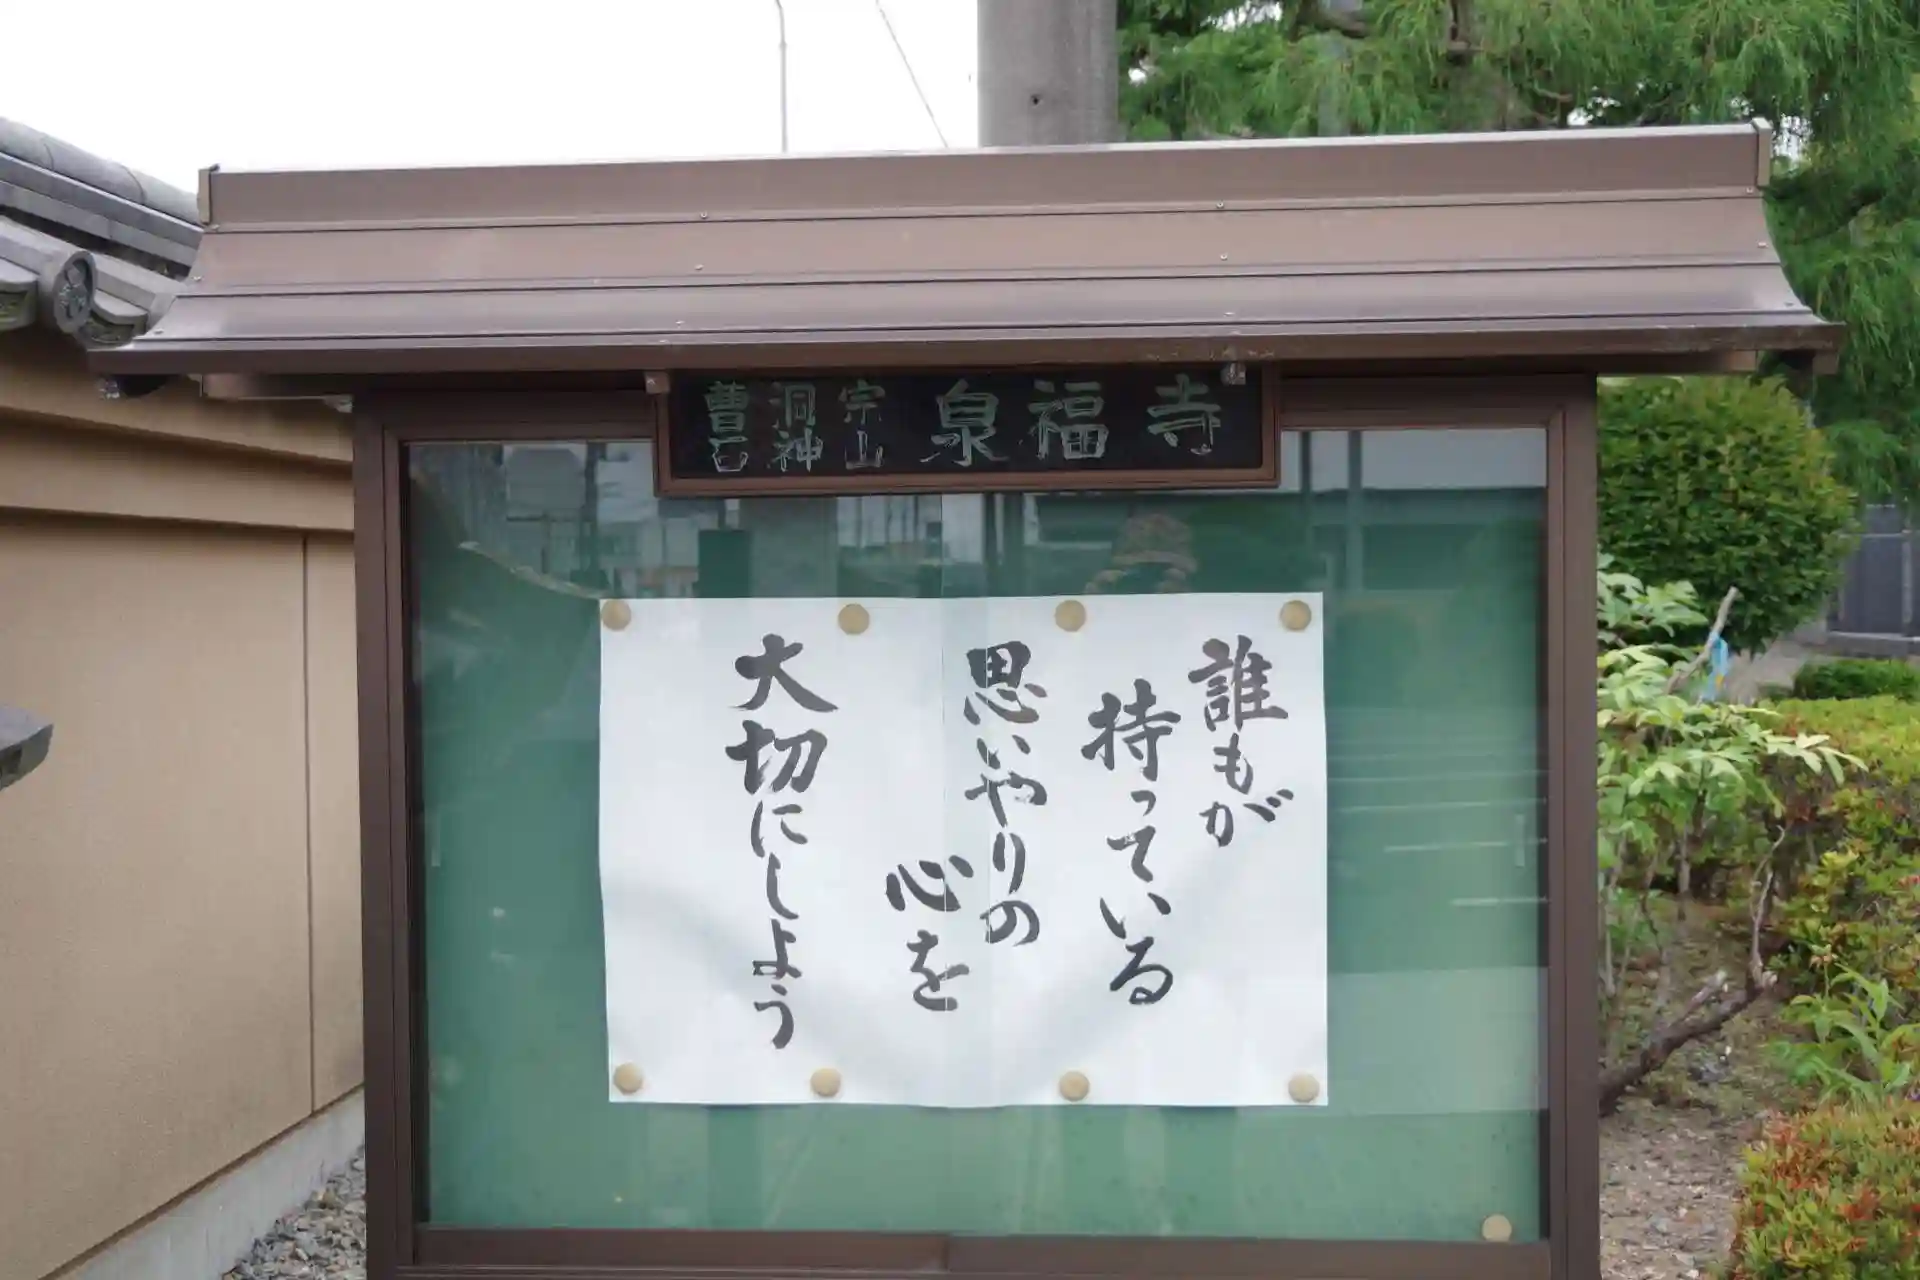 曹洞宗
石神山
泉福寺
誰もが
持っている
思いやりの
心を
大切にしよう